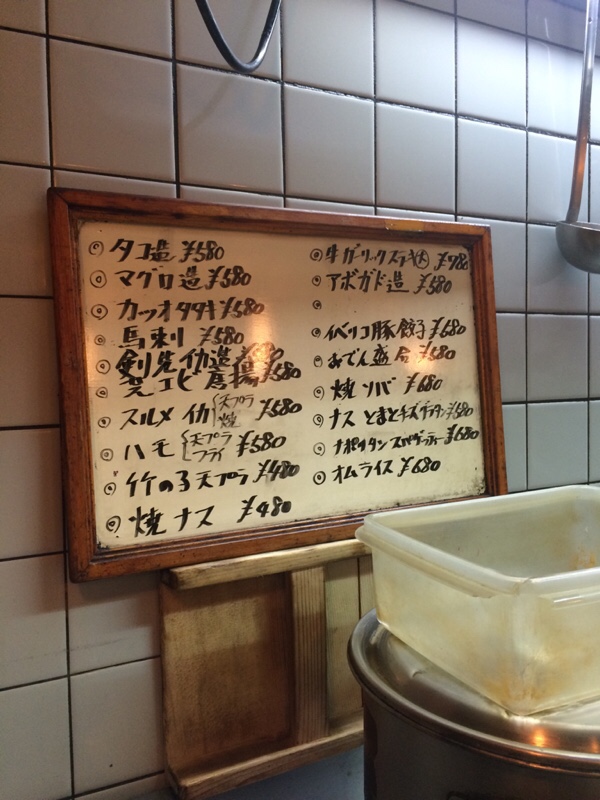 ◎ タコ造 ¥580
◎ マグロ造 ¥580
カツオタタキ ¥580
◎ 馬刺 ¥580
◎ 剣先イカ造 ¥580
◎ 芝エビ唐揚 ¥580
◎ スルメイカ 天プラ 焼 ¥580
◎ ハモ 天プラ フライ ¥580
◎ 竹の子天プラ ¥480
◎ 焼ナス ¥480
◎ 牛ガーリックステーキ大 ¥980
◎ アボガド造 ¥580
◎
◎ イベリコ豚餃子 ¥580
◎ おでん盛合 ¥580
◎ 焼ソバ ¥680
◎ ナスとまとチーズグラタン ¥580
◎ ナポリタンスパゲッティー ¥680
◎ オムライス ¥680